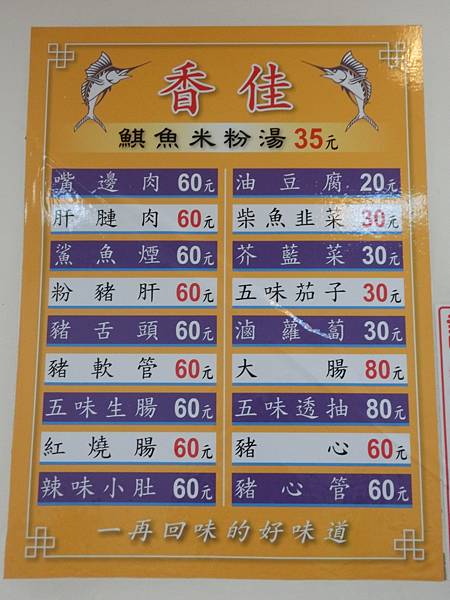 香佳
鯕魚米粉湯35元
嘴邊肉 60元
肝腱肉 60元
鯊魚煙 60元
粉豬肝 60元
豬舌頭 60元
豬軟管 60元
五味生腸 60元
紅燒腸 60元
辣味小肚 60元
油豆腐 20元
柴魚韭菜 30元
芥藍菜 30元
五味茄子 30元
滷蘿蔔 30元
大腸 80元
五味透抽 80元
豬心 60元
豬心管 60元
一再回味的好味道